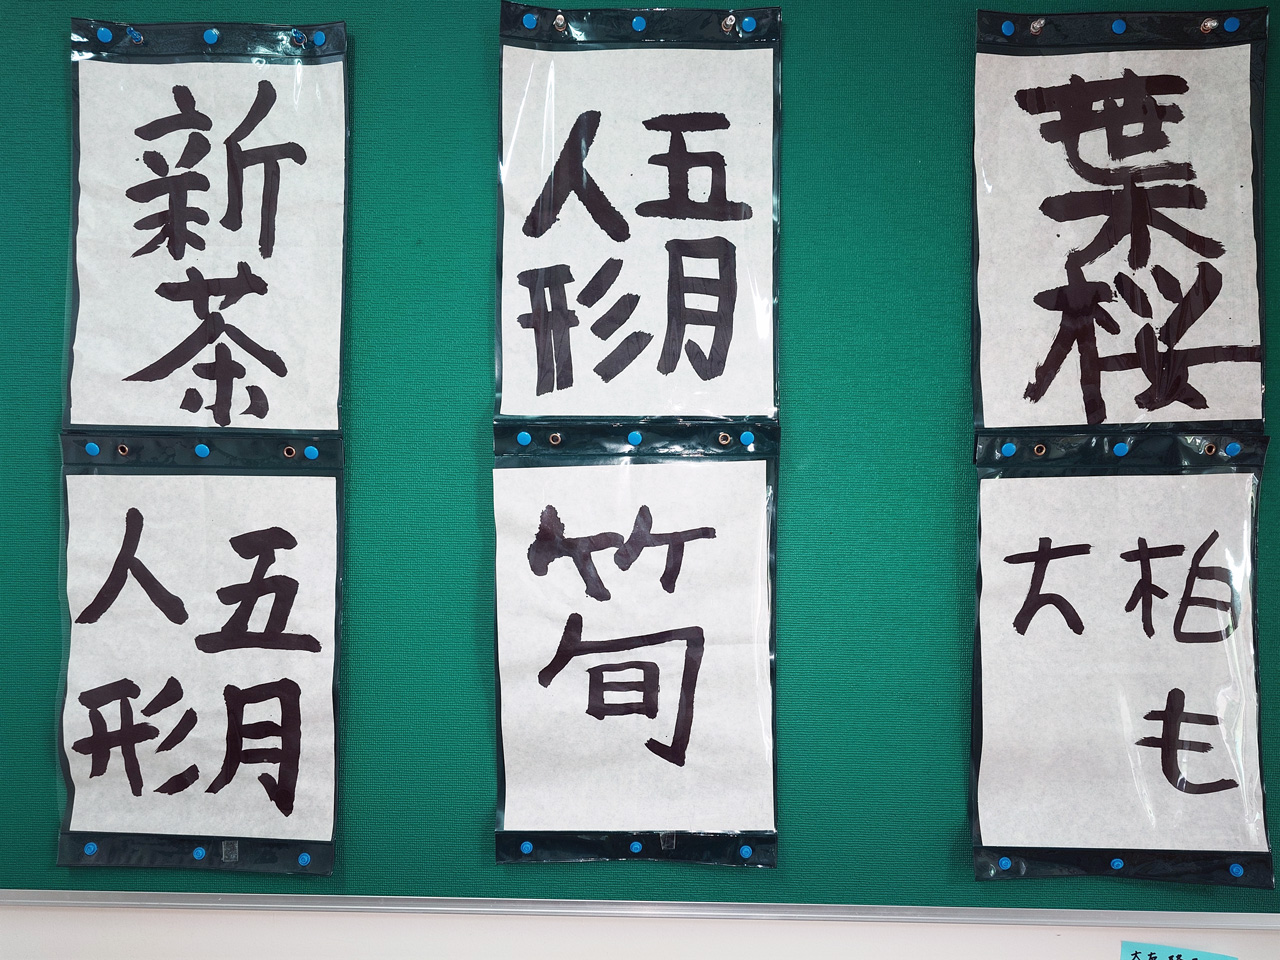 新茶
五月
人形
葉桜
五月
人形
筍
柏も
大